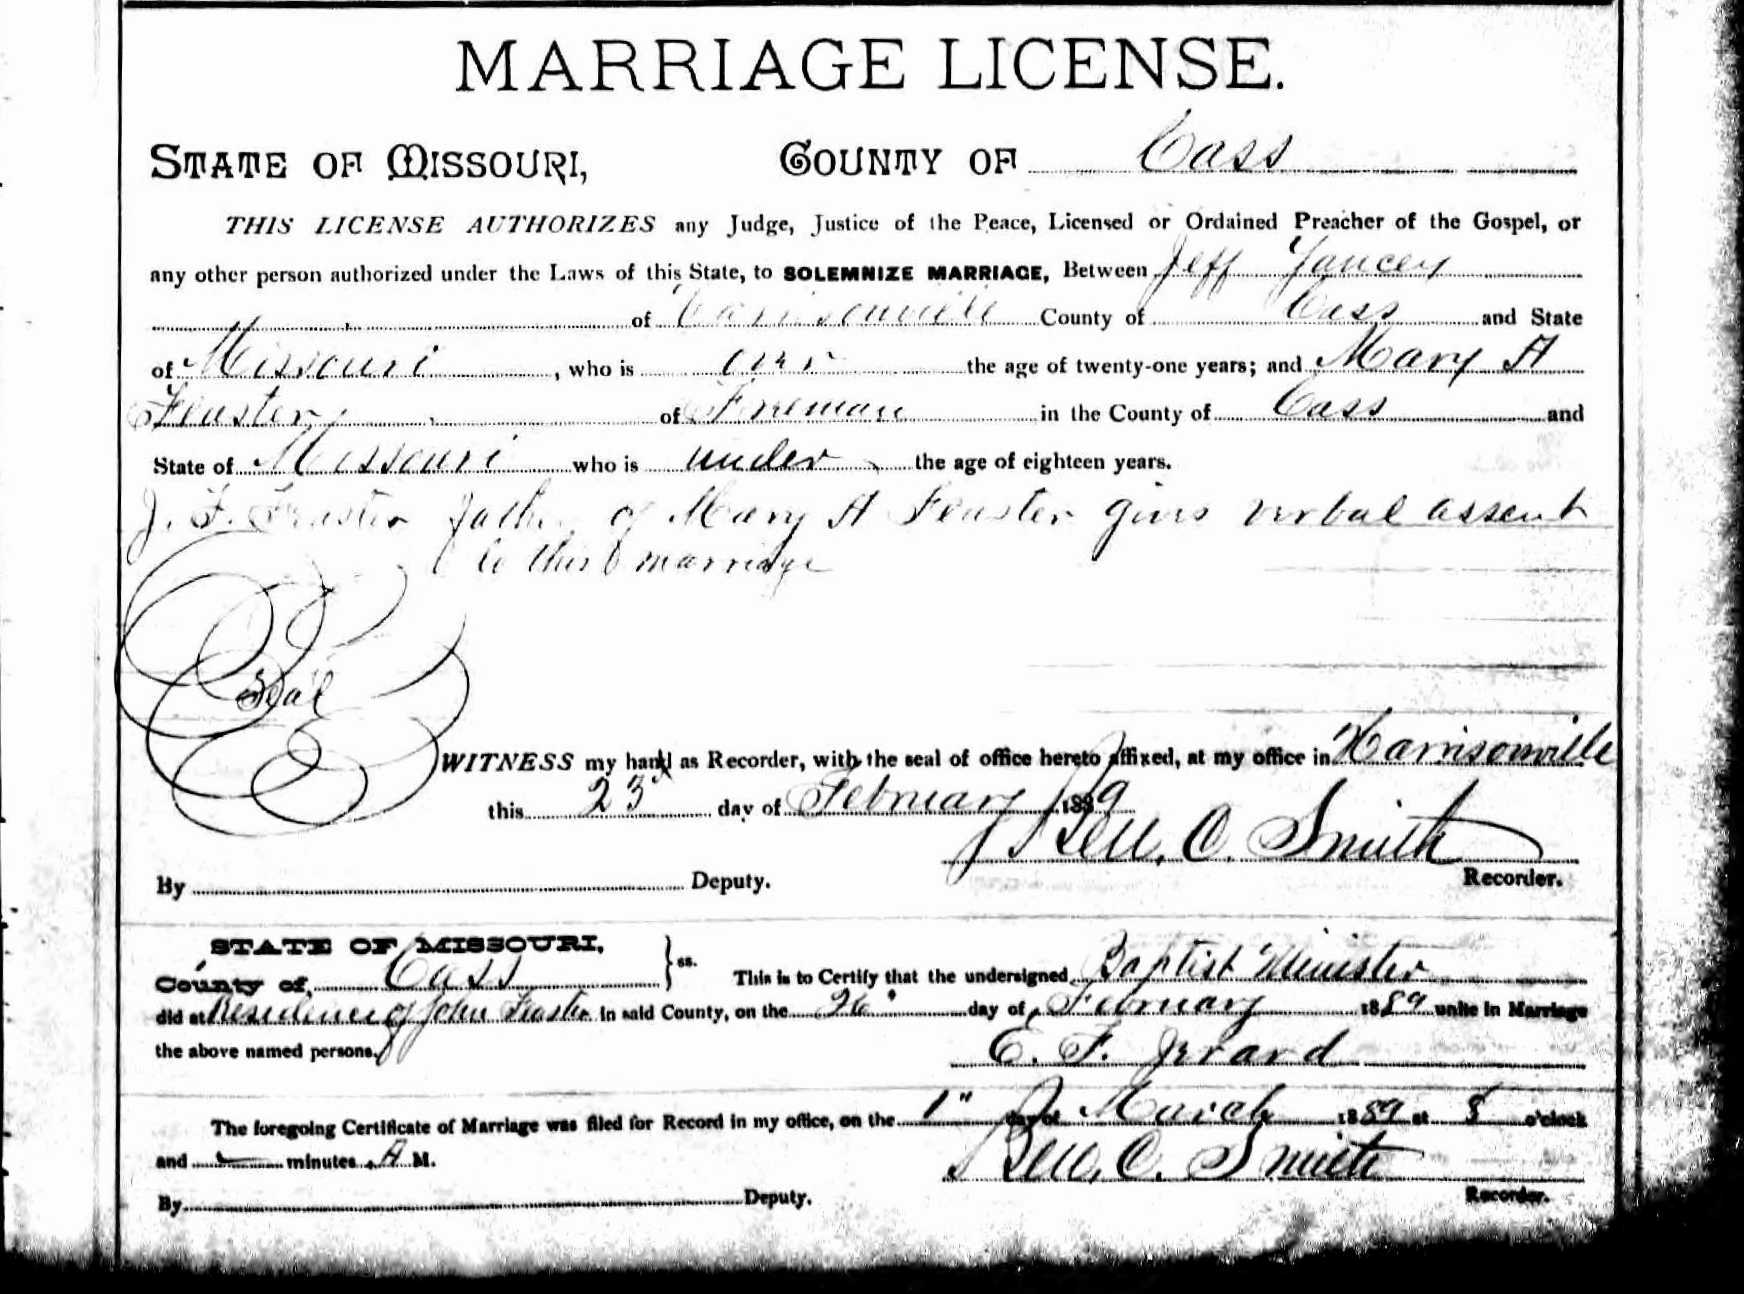 MARRIAGE LICENSE.
STATE OF MISSOURI, COUNTY OF Cass
THIS LICENSE AUTHORIZES any Judge, Justice of the Peace, Licensed or Ordained Preacher of the Gospel, or
any other person authorized under the Laws of this State, to SOLEMNIZE MARRIAGE, Between Jeff Yancey
of Harrisonville County of Cass and State
of Missouri, who is over the age of twenty-one years; and Mary A
Feaster of in the County of Cass and
State of Missouri who is under the age of eighteen years.
J. F. Feaster father of Mary A Feaster gives verbal assent
to this marriage
Seal
WITNESS my hand as Recorder, with the seal of office hereto affixed, at my office in Harrisonville
this 23 day of February 1889
Ben. C. Smith
By Deputy. Recorder.
STATE OF MISSOURI,
County of Cass } ss. This is to Certify that the undersigned Baptist Minister
did at Residence of John Feaster in said County, on the 26 day of February 1889 unite in Marriage
the above named persons. E. F.
The foregoing Certificate of Marriage was filed for Record in my office, on the 1" day of March 1889 at 8 o'clock
and minutes A M. Ben. C. Smith
By Deputy. Recorder.